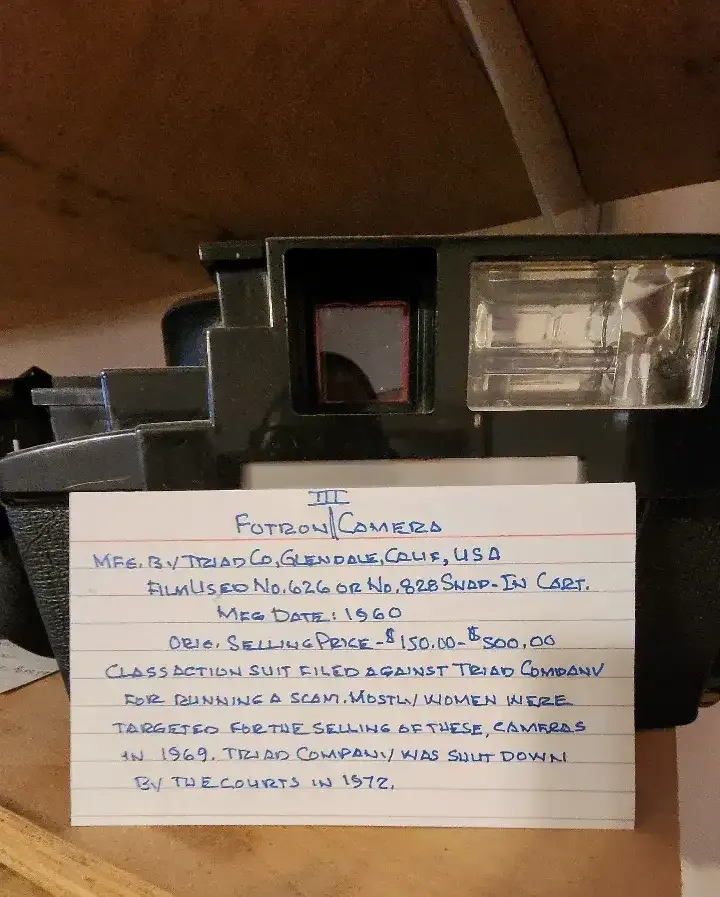 III
FOTRON CAMERA
MFG. BY TRIAD CO, GLENDALE, CALIF, USA
FILM USED NO. 626 OR NO. 828 SNAP-IN CART.
MFG DATE: 1960
ORIG. SELLING PRICE - $150.00 - $500.00
CLASS ACTION SUIT FILED AGAINST TRIAD COMPANY
FOR RUNNING A SCAM. MOSTLY WOMEN WERE
TARGETED FOR THE SELLING OF THESE, CAMERAS
IN 1969. TRIAD COMPANY WAS SHUT DOWN
BY THE COURTS IN 1972.